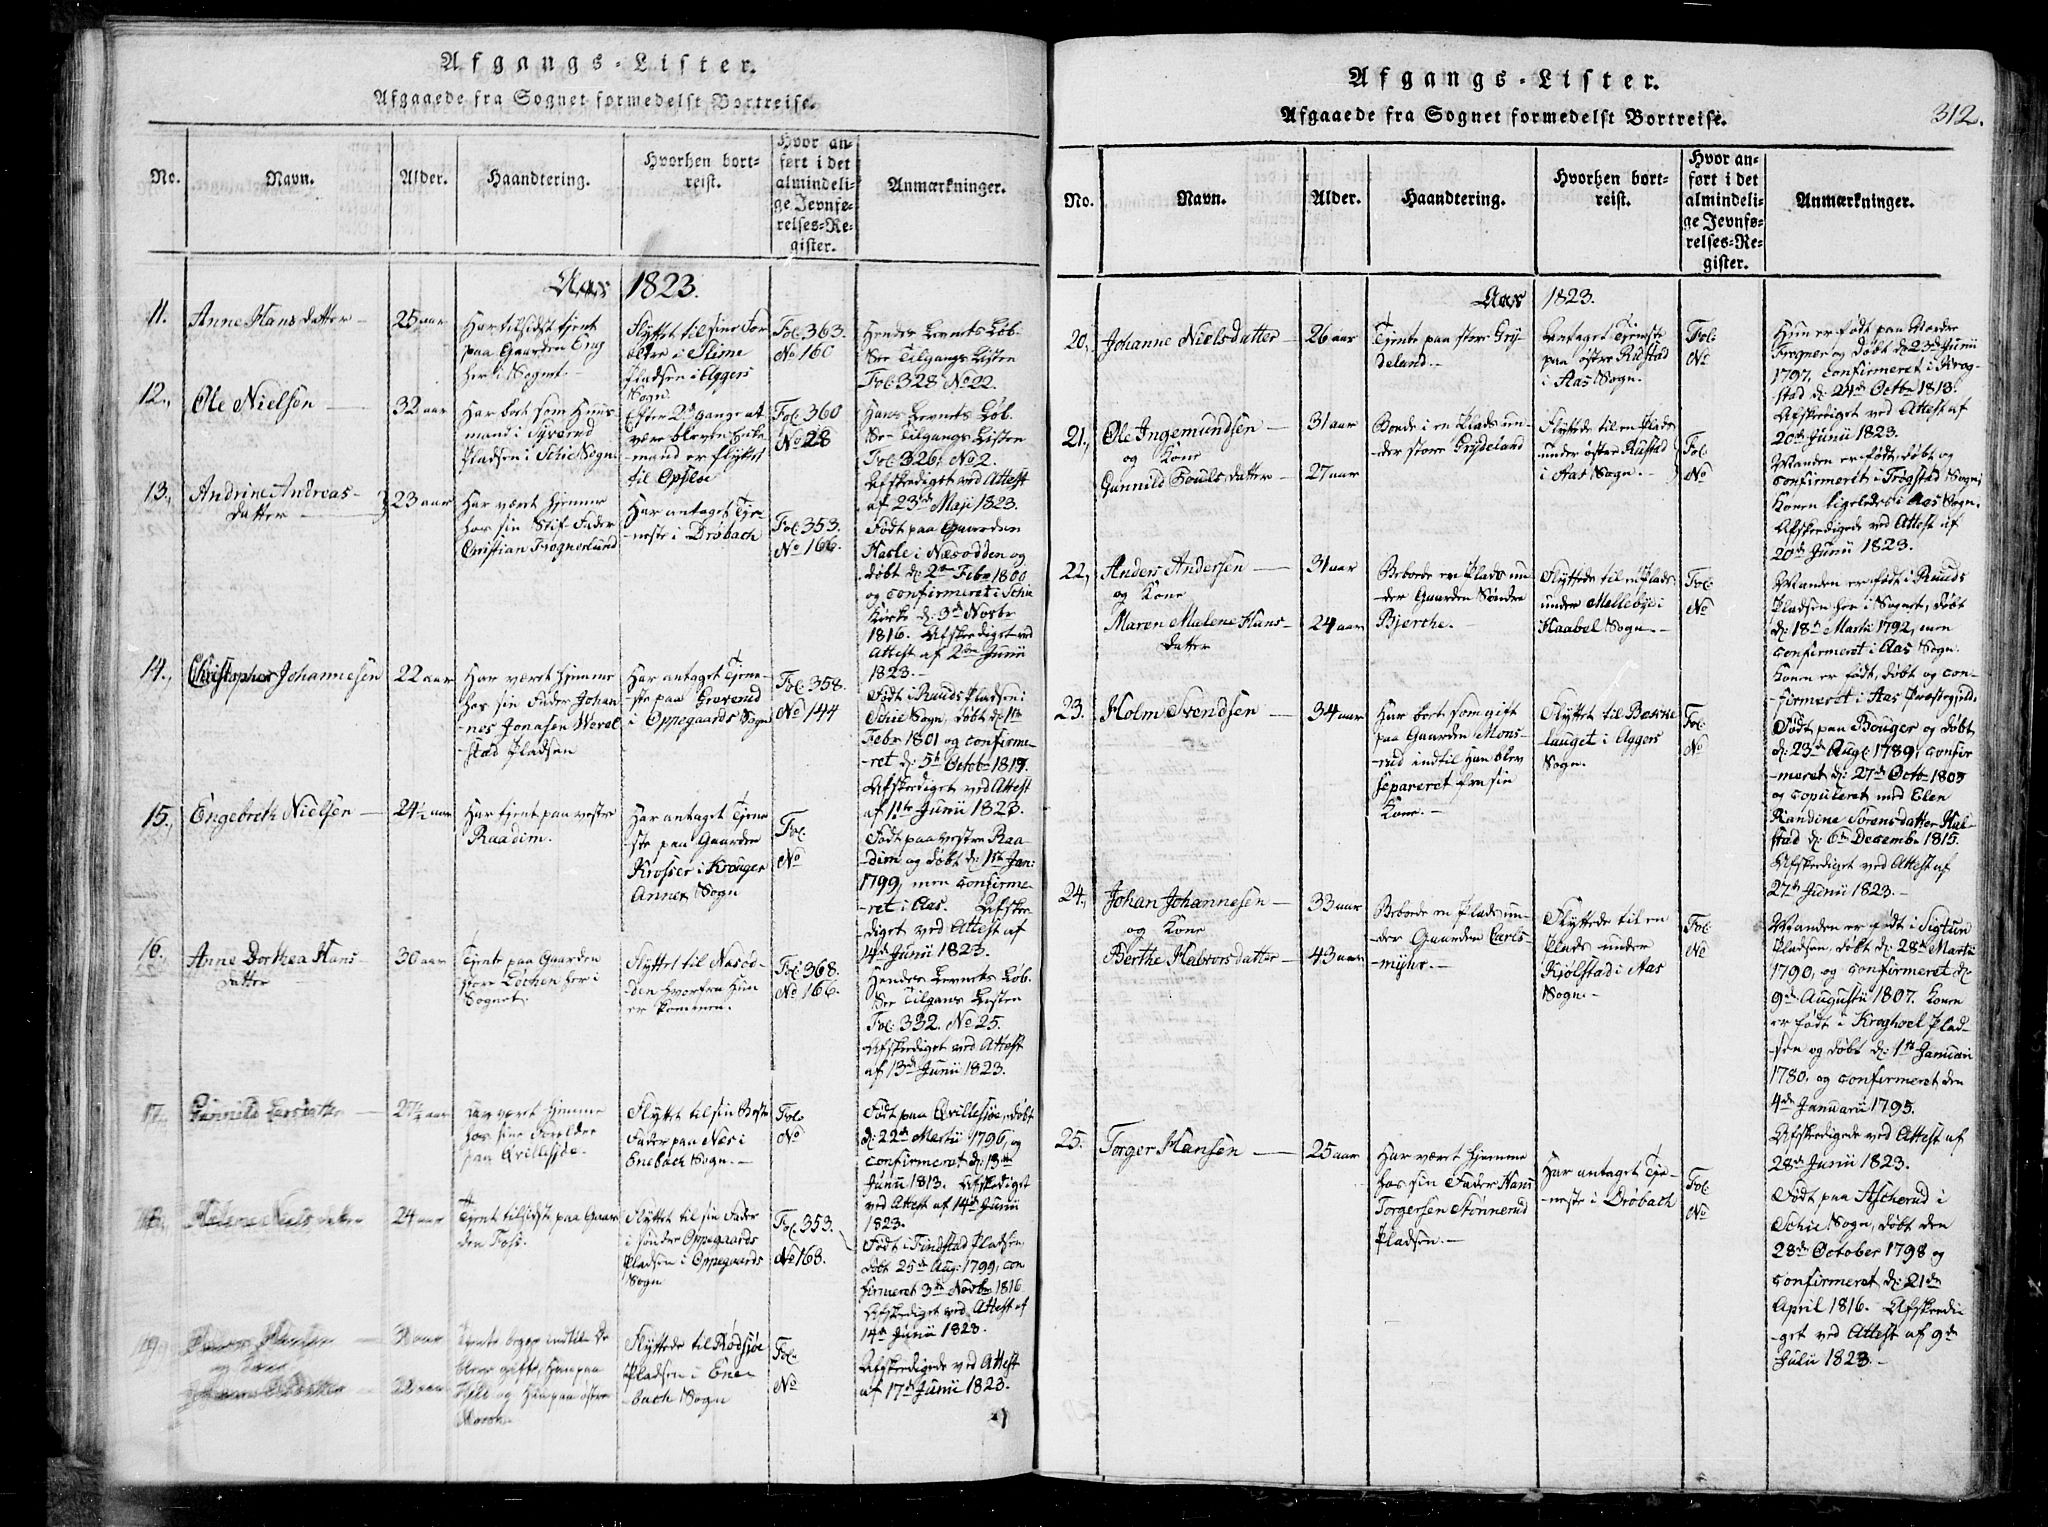 Afgangs-Lister.
Afgaaede fra Sognet formedelst Bortreise.
No.
Navn.
Alder.
Haandtering.
Hvorhen bort-
reist.
Hvor an-
ført i det
almindeli-
ge Jevnfø-
relses-Re-
gister.
Anmærkninger.
Aar 1823.
11.
Anne Hansdatter
25 aar
Har tilsidst tjent
paa Gaarden Eng
her i Sognet.
Flyttet til sine For
ældre i Slime
Pladsen i Aggers
Sogn.
Fol. 363.
No 160
Hendes Levnets Løb.
See Tilgangs Listen
Fol. 328 No 22.
12.,
Ole Nielsen
32 aar
Har boet som Huus-
mand i Syverud
Pladsen i Schie Sogn.
Efter 2de gange at
være bleven Enke
mand er flyttet
til Opsloe
Fol. 360
No 28
Hans Levnets Løb.
See Tilgangs Listen
Fol. 326, No 2.
Afskediget ved Attest
af 23de Maji 1823.
13.,
Andrine Andreas-
datter
23 aar
Har været hjemme
hos sin Stif Fader
Christian Frognerlund
Har antaget Tje-
neste i Drøbach
Fol. 353.
No 166.
Født paa Gaarden
Hasle i Næsodden og
døbt d: 2den Febr 1800
og confirmeret i Schie
Kirke d: 3de Novbr
1816. Afskediget ved
Attest af 2den Junii
1823.
14.,
Christopher Johannesen
22 aar
Har været hjemme
hos sin Fader Johan
nes Jonasen Wevel
stad Pladsen
Har antaget Tjene-
ste paa Greverud
i Oppegaards Sogn
Fol. 358.
No 144
Født i Ruuds Pladsen i
Schie Sogn, døbt d: 1ste
Febr 1801 og confirme-
ret d: 5te Octobr 1817.
Afskediget ved Attest
af 11te Junii 1823.
15.,
Engebreth Nielsen
24½ aar
Har tjent paa vestre
Raadim.
Har antaget Tjene
ste paa Gaarden
Krosser i Krouger
Annex Sogn
Fol.
No
Født paa vestre Raa-
dim og døbt d: 1ste Jan:
1799, men confirme-
ret i Aas. Afske-
diget ved Attest af
14de Junii 1823.
16.,
Anne Dorthea Hans-
datter
30 aar
Tjente paa Gaarden
store Løchen her i
Sognet.
Flyttet til Næsod-
den hvorfra Hun
er kommen.
Fol. 368.
No 166.
Hendes Levnets Løb.
See Tilgans Listen
Fol. 332. No 25.
Afskediget ved Attest
af 13de Junii 1823.
17.,
Gunnild Larsdatter
27¼ aar
Har været hjemme
hos sine Forældre
paa Qvillesjøe.
Flyttet til sin Beste
Fader paa Næs i
Enebach Sogn.
Fol.
No
Født paa Qvillesjøe, døbt
d: 22de Martii 1796, og
confirmeret d: 13de
Junii 1813. Afskediget
ved Attest af 14de Junii
1823.
18.,
Helene Nielsdatter
24 aar
Tjent tilsidst paa Gaar
den Foss.
Flyttet til sin Fader
i sønder Oppegaards
Pladsen i Oppegaards
Sogn
Fol. 353.
No 168.
Født i Findstad Pladsen,
døbt 25de Aug: 1799, con
firmeret 3de Novbr 1816.
Afskediget ved Attest af
14de Junii 1823.
19.
og Kone
aar
Tjente begge indtil De
bleve gifte, Han paa
og Hun paa østre
Flyttede til Rødsjøe
Pladsen i Ene-
bach Sogn
Fol.
No
Afskedigede ved Attest
af 17de Junii 1823.
Afgangs-Lister.
Afgaaede fra Sognet formedelst Bortreise.
312.
No.
Navn.
Alder.
Haandtering.
Hvorhen bort-
reist.
Hvor an-
ført i det
almindeli-
ge Jevnfø-
relses-Re-
gister.
Anmærkninger.
Aar 1823.
20.,
Johanne Nielsdatter
26 aar
Tjente paa store Gry-
deland.
Antaget Tjeneste
paa østre Rustad
i Aas Sogn.
Fol.
No
Hun er født paa Nordre
Frogner og døbt d: 23de Junii
1797, confirmeret i Krog-
stad d: 24de Octbr 1813.
Afskediget ved Attest af
20de Junii 1823.
21.,
Ole Ingemundsen
og Kone
Gunnild Poulsdatter
31 aar
27 aar
Boede i en Plads un-
der store Grydeland
Flyttede til en Plads
under østre Rustad
i Aas Sogn.
Fol.
No
Manden er født, døbt og
confirmeret i Trøgstad Sogn,
Konen ligeledes i Aas Sogn.
Afskedigede ved Attest af
20de Junii 1823.
22.,
Anders Andersen
og Kone
Maren Malene Hans-
datter
31 aar
24 aar
Beboede en Plads un
der Gaarden Søndre
Bjerche.
Flyttede til en Plads
under Mellebye i
Haabel Sogn.
Fol.
No
Manden er født i Ruuds
Pladsen her i Sognet, døbt
d: 18de Martii 1792, men
confirmeret i Aas Sogn.
Konen er født, døbt og con-
firmeret i Aas Præstegjeld.
23.
Holm Svendsen
34 aar
Har boet som gift
paa Gaarden Mons-
rud indtil Han blev
separeret fra sin
Kone.
Flyttet til Bærke
lauget i Aggers
Sogn.
Fol.
No
Født paa Bouger og døbt
d: 23de Aug: 1789, confir
meret d: 27de Octbr 1805
og copuleret med Elen
Randine Sørensdatter Hal-
stad d: 6te Decembr 1815.
Afskediget ved Attest af
27de Junii 1823.
24.,
Johan Johannesen
og Kone
Berthe Halvorsdatter
33 aar
43 aar
Beboede en Plads un-
der Gaarden Carls-
myhr.
Flyttede til en
Plads under
Kjølstad i Aas
Sogn.
Fol.
No
Manden er født i Sigtun
Pladsen, døbt d: 28de Martii
1790, og confirmeret d:
9de Augustii 1807. Konen
er født i Kroghoel Plad-
sen og døbt d: 1ste Januari
1780, og confirmeret den
4de Januarii 1795.
Afskedigede ved Attest af
28de Junii 1823.
25.
Torger Hansen
25 aar
Har været hjemme
hos sin Fader Hans
Torgersen Stønnerud
Pladsen.
Har antaget Tje-
neste i Drøbach
Fol.
No
Født paa Ascherud i
Schie Sogn, døbt den
28de October 1798 og
confirmeret d: 21de
April 1816. Afskedi-
get ved Attest af 9de
Julii 1823.